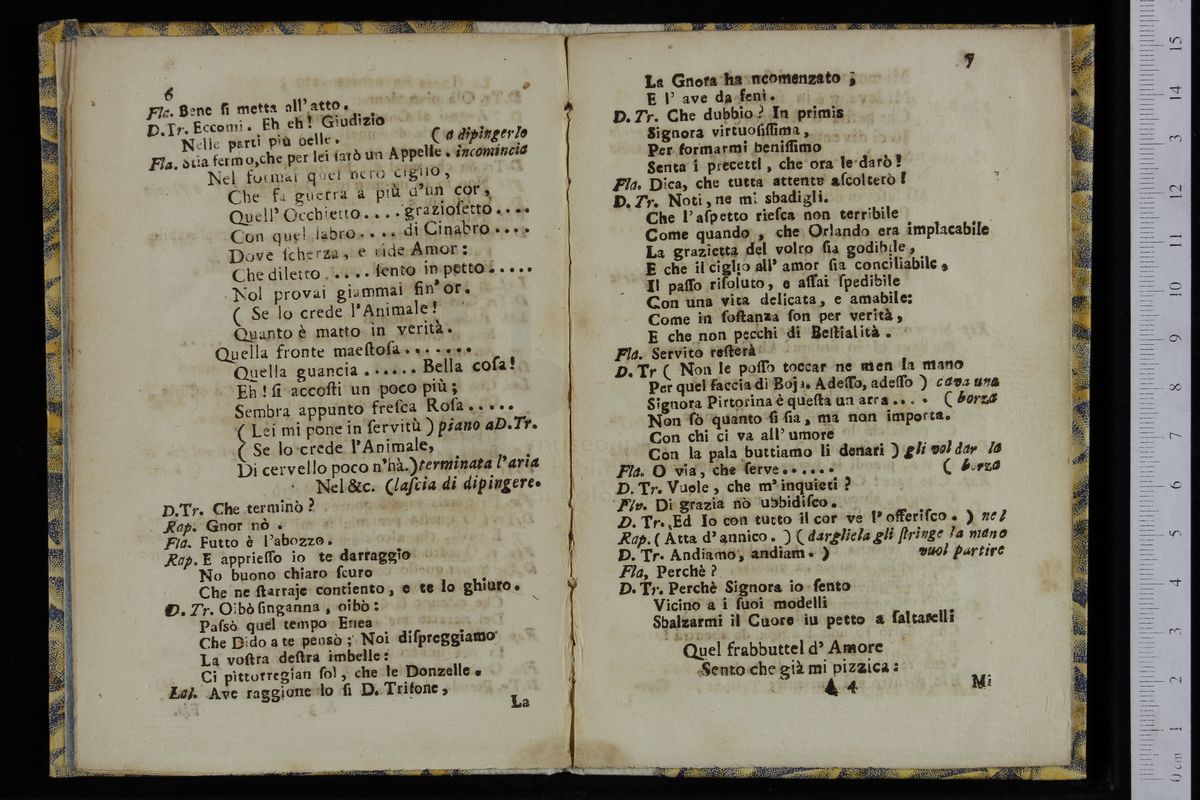 6
Fla. Bene ſi metta all'atto.
D.Tr. Eccomi. Eh eh! Giudizio
Nelle parti più oelle. ( a dipingerlo
Fla. Stia fermo, che per lei ſarò un Appelle. incomincia
Nel formar quel nero ciglio,
Che fa guerra a più d'un cor,
Quell' Occhietto.... grazioſetto....
Con quel labro.... di Cinabro....
Dove ſcherza, e ride Amor:
Che diletto..... ſento in petto.....
Nol provai giammai ſin'or.
( Se lo crede l'Animale!
Quanto è matto in verità.
Quella fronte maeſtoſa.......
Quella guancia...... Bella coſa!
Eh! ſi accoſti un poco più;
Sembra appunto freſca Roſa.....
( Lei mi pone in ſervitù ) piano a D.Tr.
( Se lo crede l'Animale,
Di cervello poco n'hà.) terminata l'aria
Nel &c. (laſcia di dipingere.
D.Tr. Che terminò?
Rap. Gnor nò.
Fla. Futto è l'abozzo.
Rap. E apprieſſo io te darraggio
No buono chiaro ſcuro
Che ne ſtarraje contiento, e te lo ghiuro.
D. Tr. Oibò ſinganna, oibò:
Paſsò quel tempo Enea
Che Dido a te pensò; Noi diſpreggiamo
La voſtra deſtra imbelle:
Ci pittorregian ſol, che le Donzelle.
Lal. Ave raggione lo ſi D. Triſone,
La
7
La Gnora ha ncomenzato;
E l' ave da fenì.
D. Tr. Che dubbio? In primis
Signora virtuoſiſſima,
Per formarmi beniſſimo
Senta i precetti, che ora le darò!
Fla. Dica, che tutta attente aſcolterò!
D. Tr. Noti, ne mi sbadigli.
Che l'aſpetto rieſca non terribile
Come quando, che Orlando era implacabile
La grazietta del volto ſia godibile,
E che il ciglio all' amor ſia conciliabile,
Il paſſo riſoluto, e aſſai ſpedibile
Con una vita delicata, e amabile:
Come in ſoſtanza ſon per verità,
E che non pecchi di Beſtialità.
Fla. Servito reſterà
D. Tr ( Non le poſſo toccar ne men la mano
Per quel faccia di Boja. Adeſſo, adeſſo ) cava una
Signora Pirtorina è queſta un arra.... ( borza
Non sò quanto ſi ſia, ma non importa.
Con chi ci va all' umore
Con la pala buttiamo li denari ) gli vol dar la
Fla. O via, che ſerve...... ( borza
D. Tr. Vuole, che m'inquieti?
Fla. Di grazia nò ubbidiſco.
D. Tr. Ed Io con tutto il cor ve l'offeriſco. ) nel
Rap. ( Atta d'annico. ) ( dargliela gli ſtringe la mano
D. Tr. Andiamo, andiam. ) vuol partire
Fla, Perchè?
D. Tr. Perchè Signora io ſento
Vicino a i ſuoi modelli
Sbalzarmi il Cuore iu petto a ſaltarelli
Quel frabbuttel d'Amore
Sento che già mi pizzica:
A 4
Mi